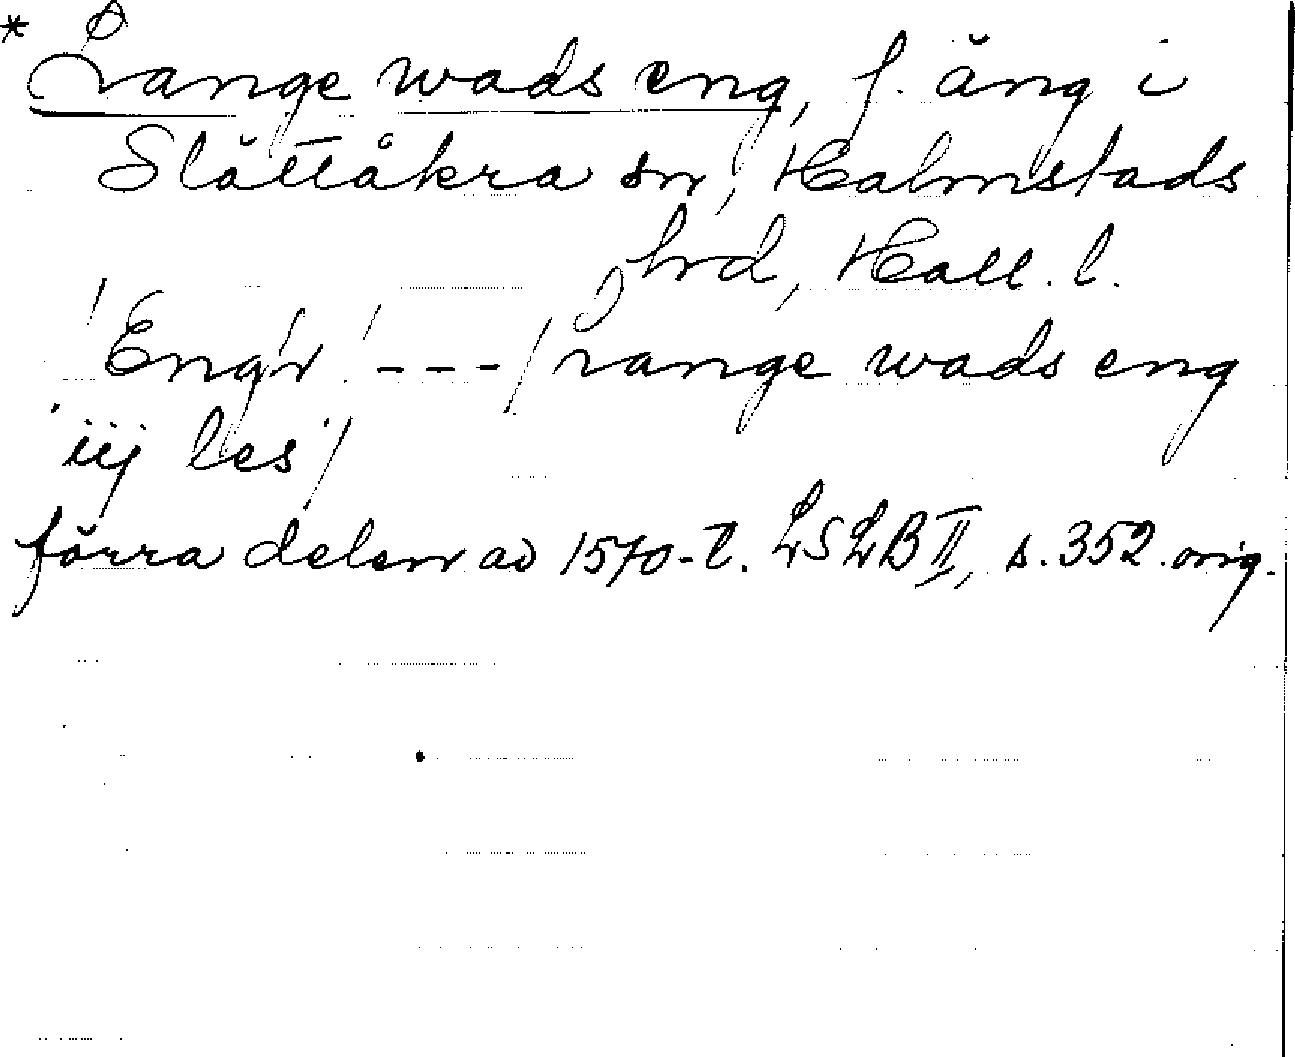 * Lange wads eng, f. äng i
Slättåkra sn, Halmstads
hrd, Hall. l.
'Eng'r' --- / range wads eng
iij les /
förra delen av 1570-t. LSLB II, s. 352. orig.